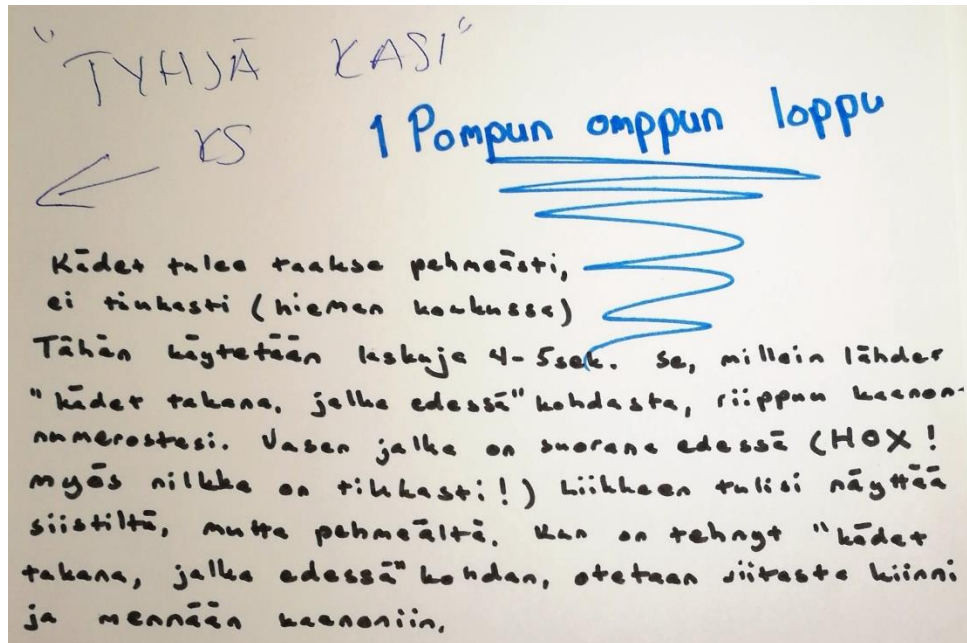 "TYHJÄ KASI"
KS
1 Pompun omppun loppu
Kädet tulee taakse pehmeästi,
ei tiukasti (hieman koukussa)
Tähän käytetään laskuja 4-5sek. se, milloin lähdet
"kädet takana, jalka edessä" kohdasta, riippuu kaanon-
numerostasi. Vasen jalka on suorana edessä (HOX!
myös nilkka on tiukasti!) Liikkeen tulisi näyttää
siistiltä, mutta pehmeältä. Kun on tehnyt "kädet
takana, jalka edessä" kohdan, otetaan viitasta kiinni
ja mennään kaanoniin.